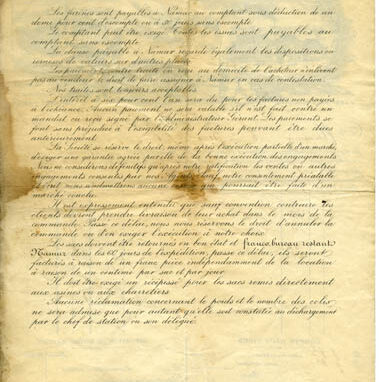 Les farines sont payables à Namur au comptant sous déduction de un
demi pour cent d'escompte ou à 30 jours sans escompte.
Le comptant peut être exigé. Toutes les issues sont payables au
comptant sans escompte.
La clause payable à Namur regarde également les dispositions ou
remises de valeurs sur d'autres places.
Les paiements contre traite ou reçu au domicile de l'acheteur n'enlèvent
pas au vendeur le droit de faire assigner à Namur en cas de contestation.
Nos traites sont toujours acceptables.
L'intérêt à six pour cent l'an sera dû pour les factures non payées
à l'échéance. Aucun paiement ne sera valable s'il n'est fait contre un
mandat ou reçu signé par l'Administrateur Gérant. Les paiements se
font sans préjudice à l'exigibilité des factures pouvant être dues
antérieurement.
La Société se réserve le droit, même après l'exécution partielle d'un marché,
d'exiger une garantie agréée par elle de la bonne exécution des engagements
qui pourrait être faite d'un
marché conclu.
Il est expressément entendu que sauf convention contraire les
clients devront prendre livraison de leur achat dans le mois de la
commande. Passé ce délai, nous nous réservons le droit d'annuler la
commande ou d'en exiger l'exécution à notre choix.
Les sacs devront être retournés en bon état et franco, bureau restant,
Namur dans les 60 jours de l'expédition, passé ce délai, ils seront
facturés à raison de un franc pièce indépendamment de la location
à raison de un centime par sac et par jour.
Il doit être exigé un récépissé pour les sacs remis directement
aux usines ou aux charretiers.
Aucune réclamation concernant le poids et le nombre des colis
ne sera admise que pour autant qu'elle soit constatée au déchargement
par le chef de station ou son délégué.